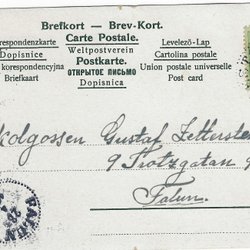 Brefkort — Brev-Kort.
respondenzkarte Carte Postale. Levelező-Lap
Dopisnice Weltpostverein Cartolina postale
korespondencyjna Postkarte. Union postale universelle
Briefkaart ОТКРЫТОЕ ПИСЬМО Post card
Dopisnica
kolgossen Gustaf Zetterste
9 Trotzgatan 9
Falun.